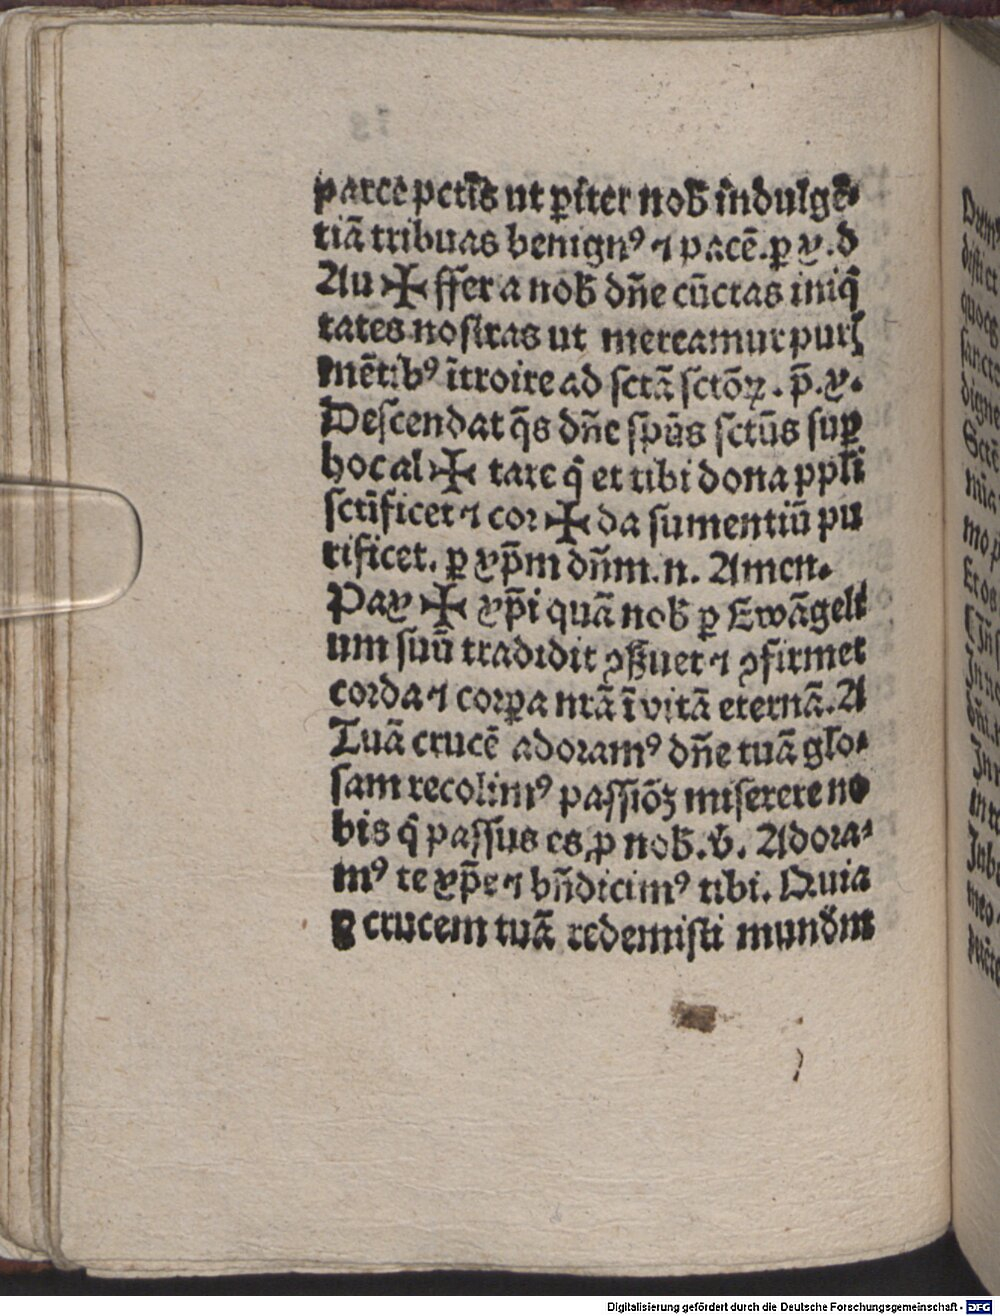 parce pctīs ut ꝑiter nob̄ indulgē-
tiā tribuas benignꝰ ⁊ pacē. ꝑ x. d
Au ✠ ffer a nob̄ dn̄e cūctas iniq̄
tates nostras ut mereamur puris
mētibꝰ ītroire ad sctā sctōꝝ. p̄. x.
Descendat q̄s dn̄e sp̄ūs sctūs suꝑ
hoc al ✠ tare q̄ et tibi dona ppli
sctīficet ⁊ cor ✠ da sumentiū pu
rificet. ꝑ xp̄m dn̄m. n. Amen.
Pax ✠ xp̄i quā nob̄ ꝑ Ewāgeli
um suū tradidit ꝯẞuet ⁊ ꝯfirmet
corda ⁊ corꝑa nrā ī vitā eternā. A
Tuā crucē adoramꝰ dn̄e tuā glo-
sam recolimꝰ passiōꝫ miserere no
bis q̄ passus es ꝓ nob̄. v̄. Adora-
mꝰ te xp̄e ⁊ bn̄dicimꝰ tibi. Quia
ꝑ crucem tuā redemisti mundm
Digitalisierung gefördert durch die Deutsche Forschungsgemeinschaft - DFG